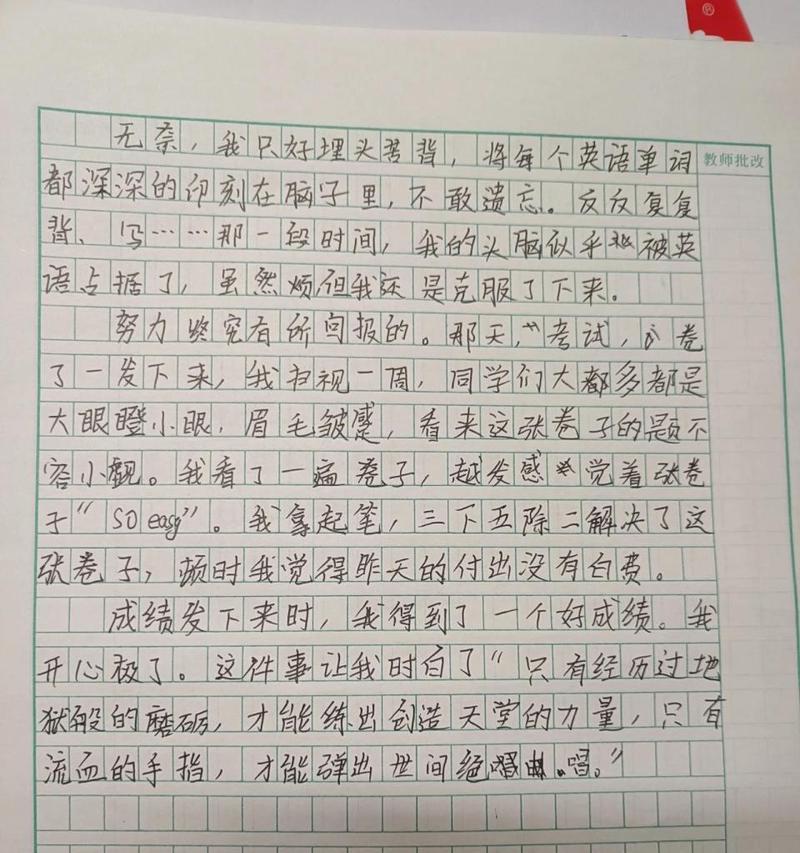 教师批改
无奈，我只好埋头苦背，将每个英语单词
都深深的印刻在脑子里，不敢遗忘。反反复复
背、写……那一段时间，我的头脑似乎被英
语占据了，虽然烦，但我还是克服了下来。
努力终究有所回报的。那天，考试，卷
了一发下来，我扫视一周，同学们大都多都是
大眼瞪小眼，眉毛皱蹙，看来这张卷子的题不
容小觑。我看了一遍卷子，越发感觉着张卷
子“so easy”。我拿起笔，三下五除二解决了这
张卷子，顿时我觉得昨天的付出没有白费。
成绩发下来时，我得到了一个好成绩。我
开心极了。这件事让我时白了“只有经历过地
狱般的磨砺，才能练出创造天堂的力量，只有
流血的手指，才能弹出世间绝唱。”